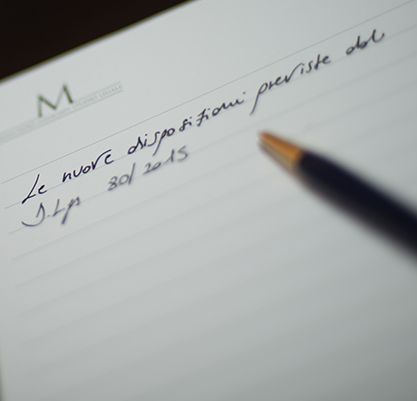 M
Le nuove disposizioni previste dal
D.Lgs 80/2015